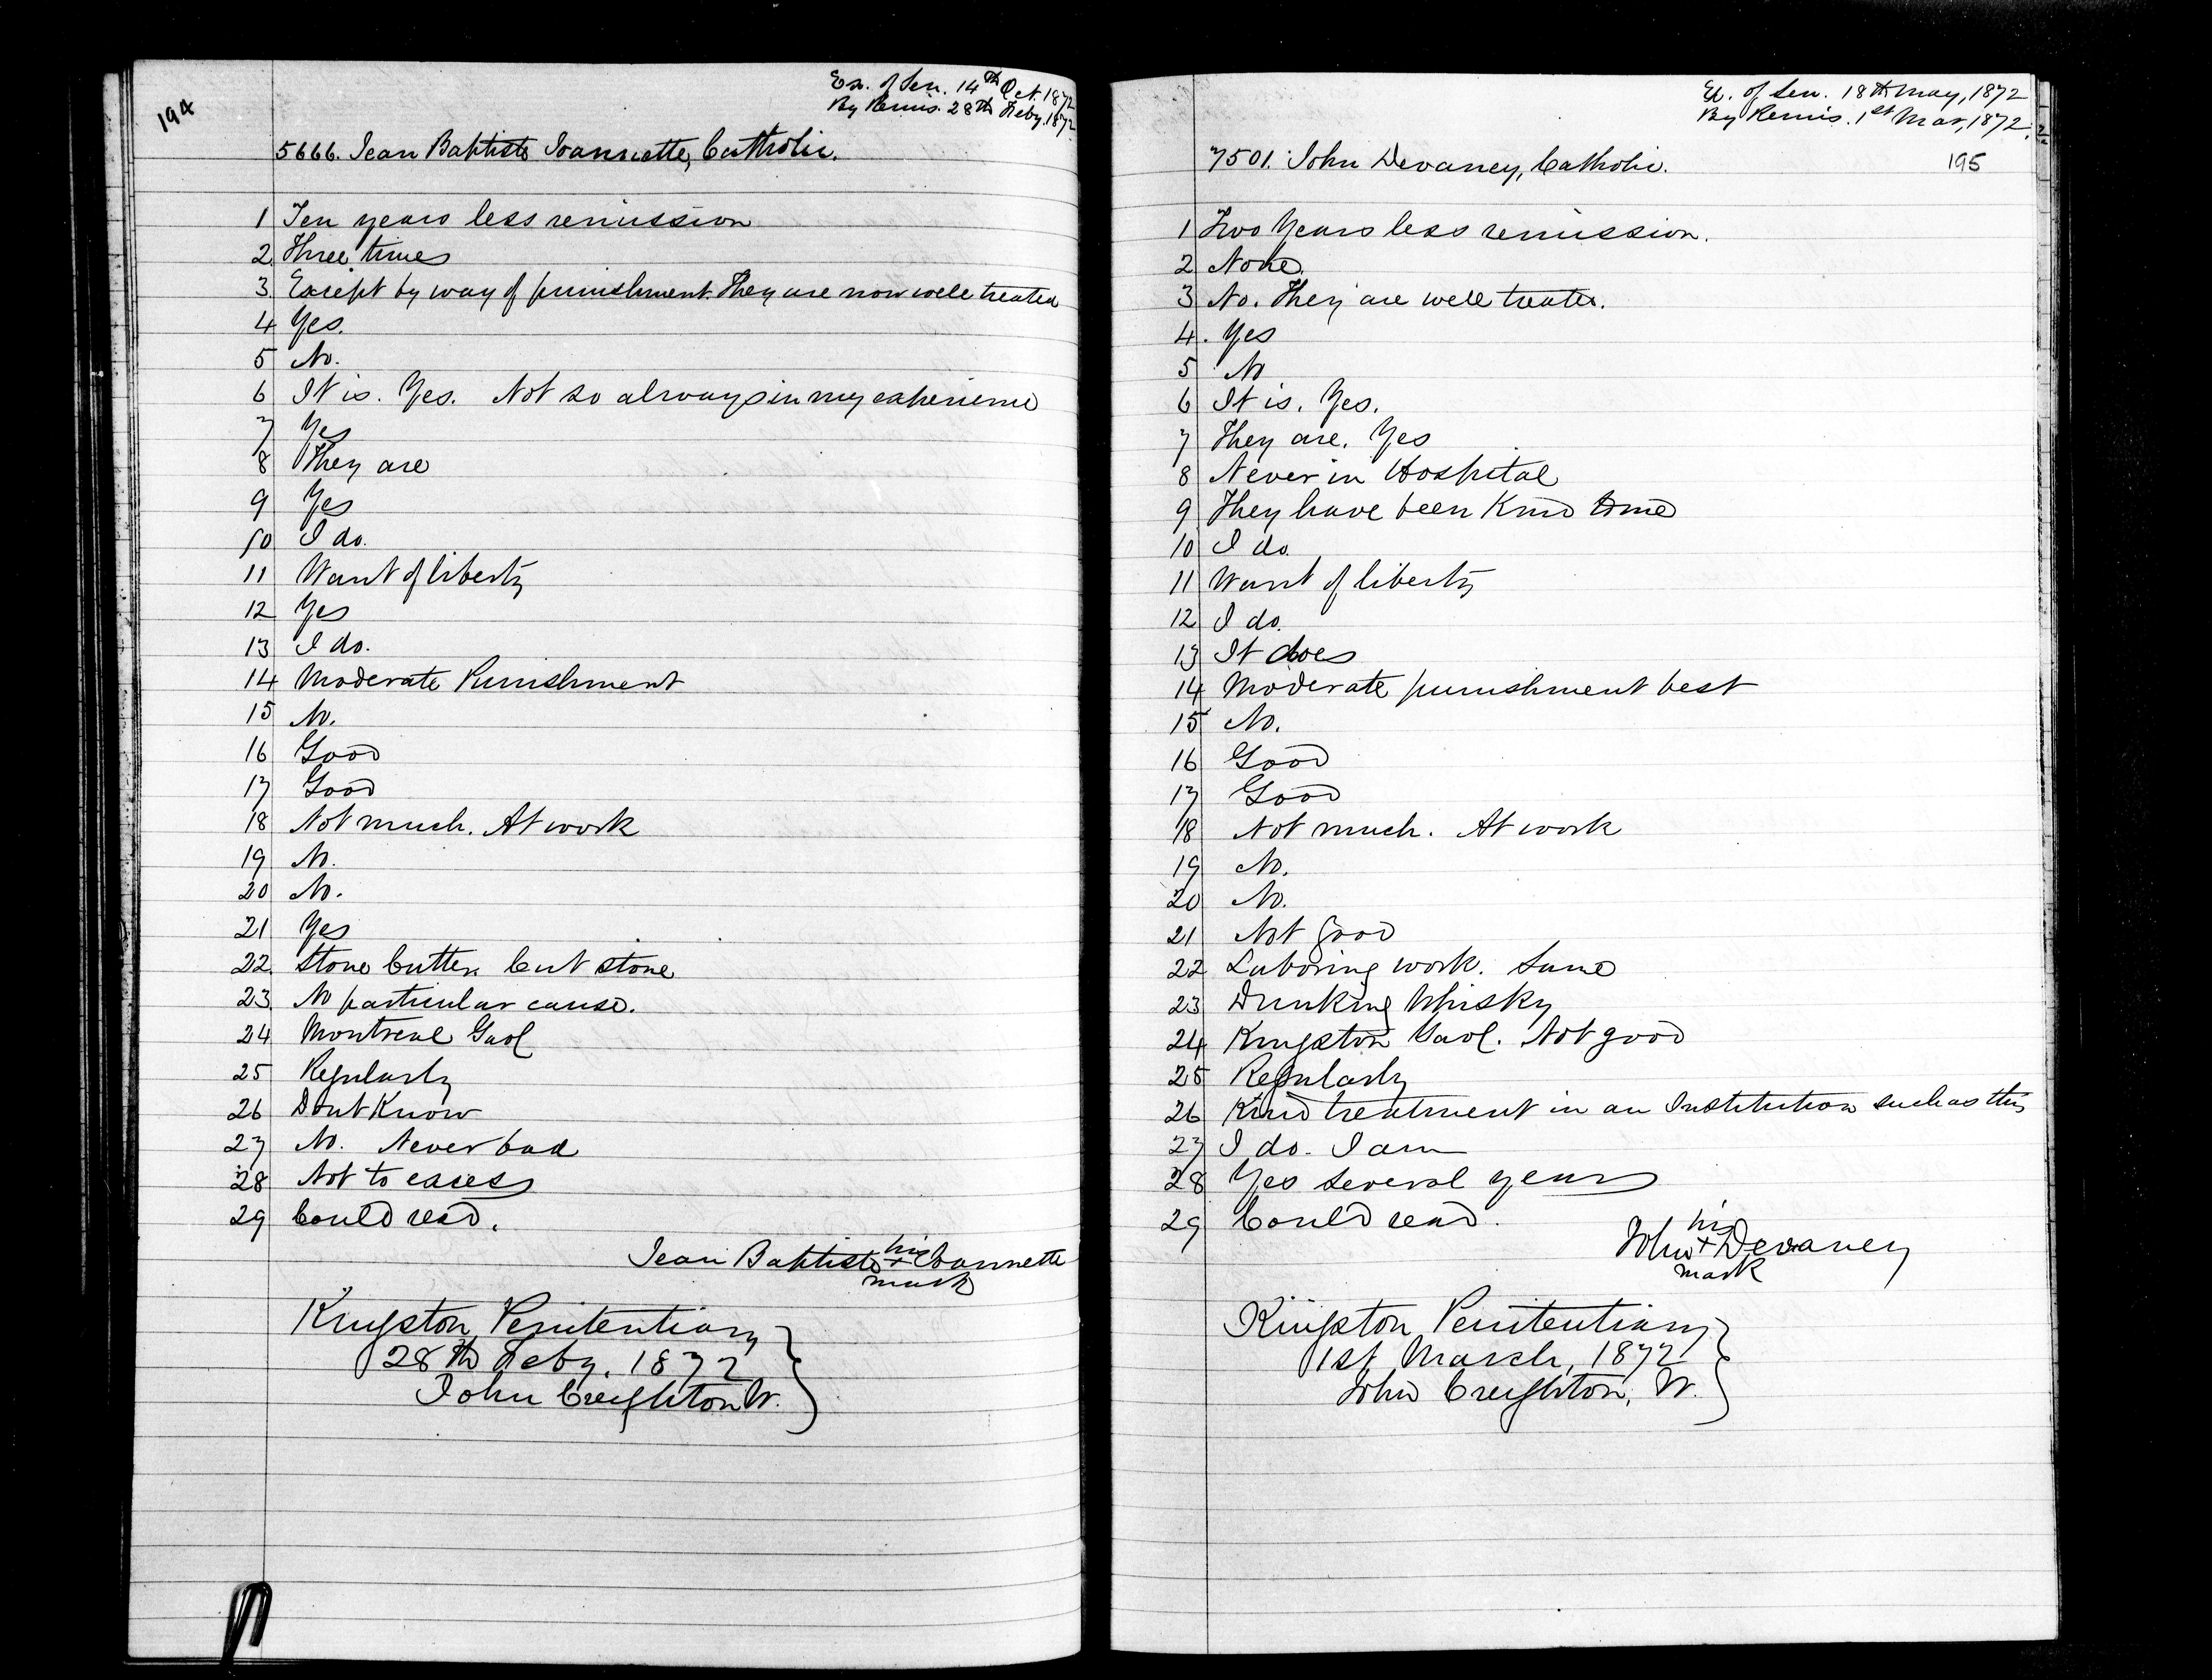 194
Ex. of Sen. 14th Oct. 1872
By Remis. 28th Feby. 1872
5666. Jean Baptiste Ioannette, Catholic.
1 Ten years less remission
2 Three times
3 Except by way of punishment. They are now well treated
4 Yes.
5 No.
6 It is. Yes. Not so always in my experience
7 Yes
8 They are
9 Yes
10 I do.
11 Want of liberty
12 Yes
13 I do.
14 Moderate Punishment
15 No.
16 Good
17 Good
18 Not much. At work
19 No.
20 No.
21 Yes
22 Stone Cutter. Cut stone
23 No particular cause.
24 Montreal Gaol
25 Regularly
26 Dont Know
27 No. Never bad
28 Not to excess
29 Could read.
his
Jean Baptiste + Ioannette
mark
Kingston Penitentiary
28th Feby. 1872
John Creighton W.
Ex. of Sen. 18th May, 1872
By Remis. 1st Mar, 1872.
7501. John Devaney, Catholic.
195
1 Two Years less remission.
2 None.
3 No. They are well treated.
4. Yes
5 No
6 It is. Yes.
7 They are. Yes
8 Never in Hospital
9 They have been Kind to me
10 I do.
11 Want of liberty
12 I do.
13 It does
14 Moderate punishment best
15 No.
16 Good
17 Good
18 Not much. At work
19 No.
20 No.
21 Not good
22 Laboring work. Same
23 Drinking Whisky
24 Kingston Gaol. Not good
25 Regularly
26 Kind treatment in an Institution such as this
27 I do. I am
28 Yes several years
29 Could read.
his
John + Devaney
mark
Kingston Penitentiary
1st March, 1872
John Creighton, W.